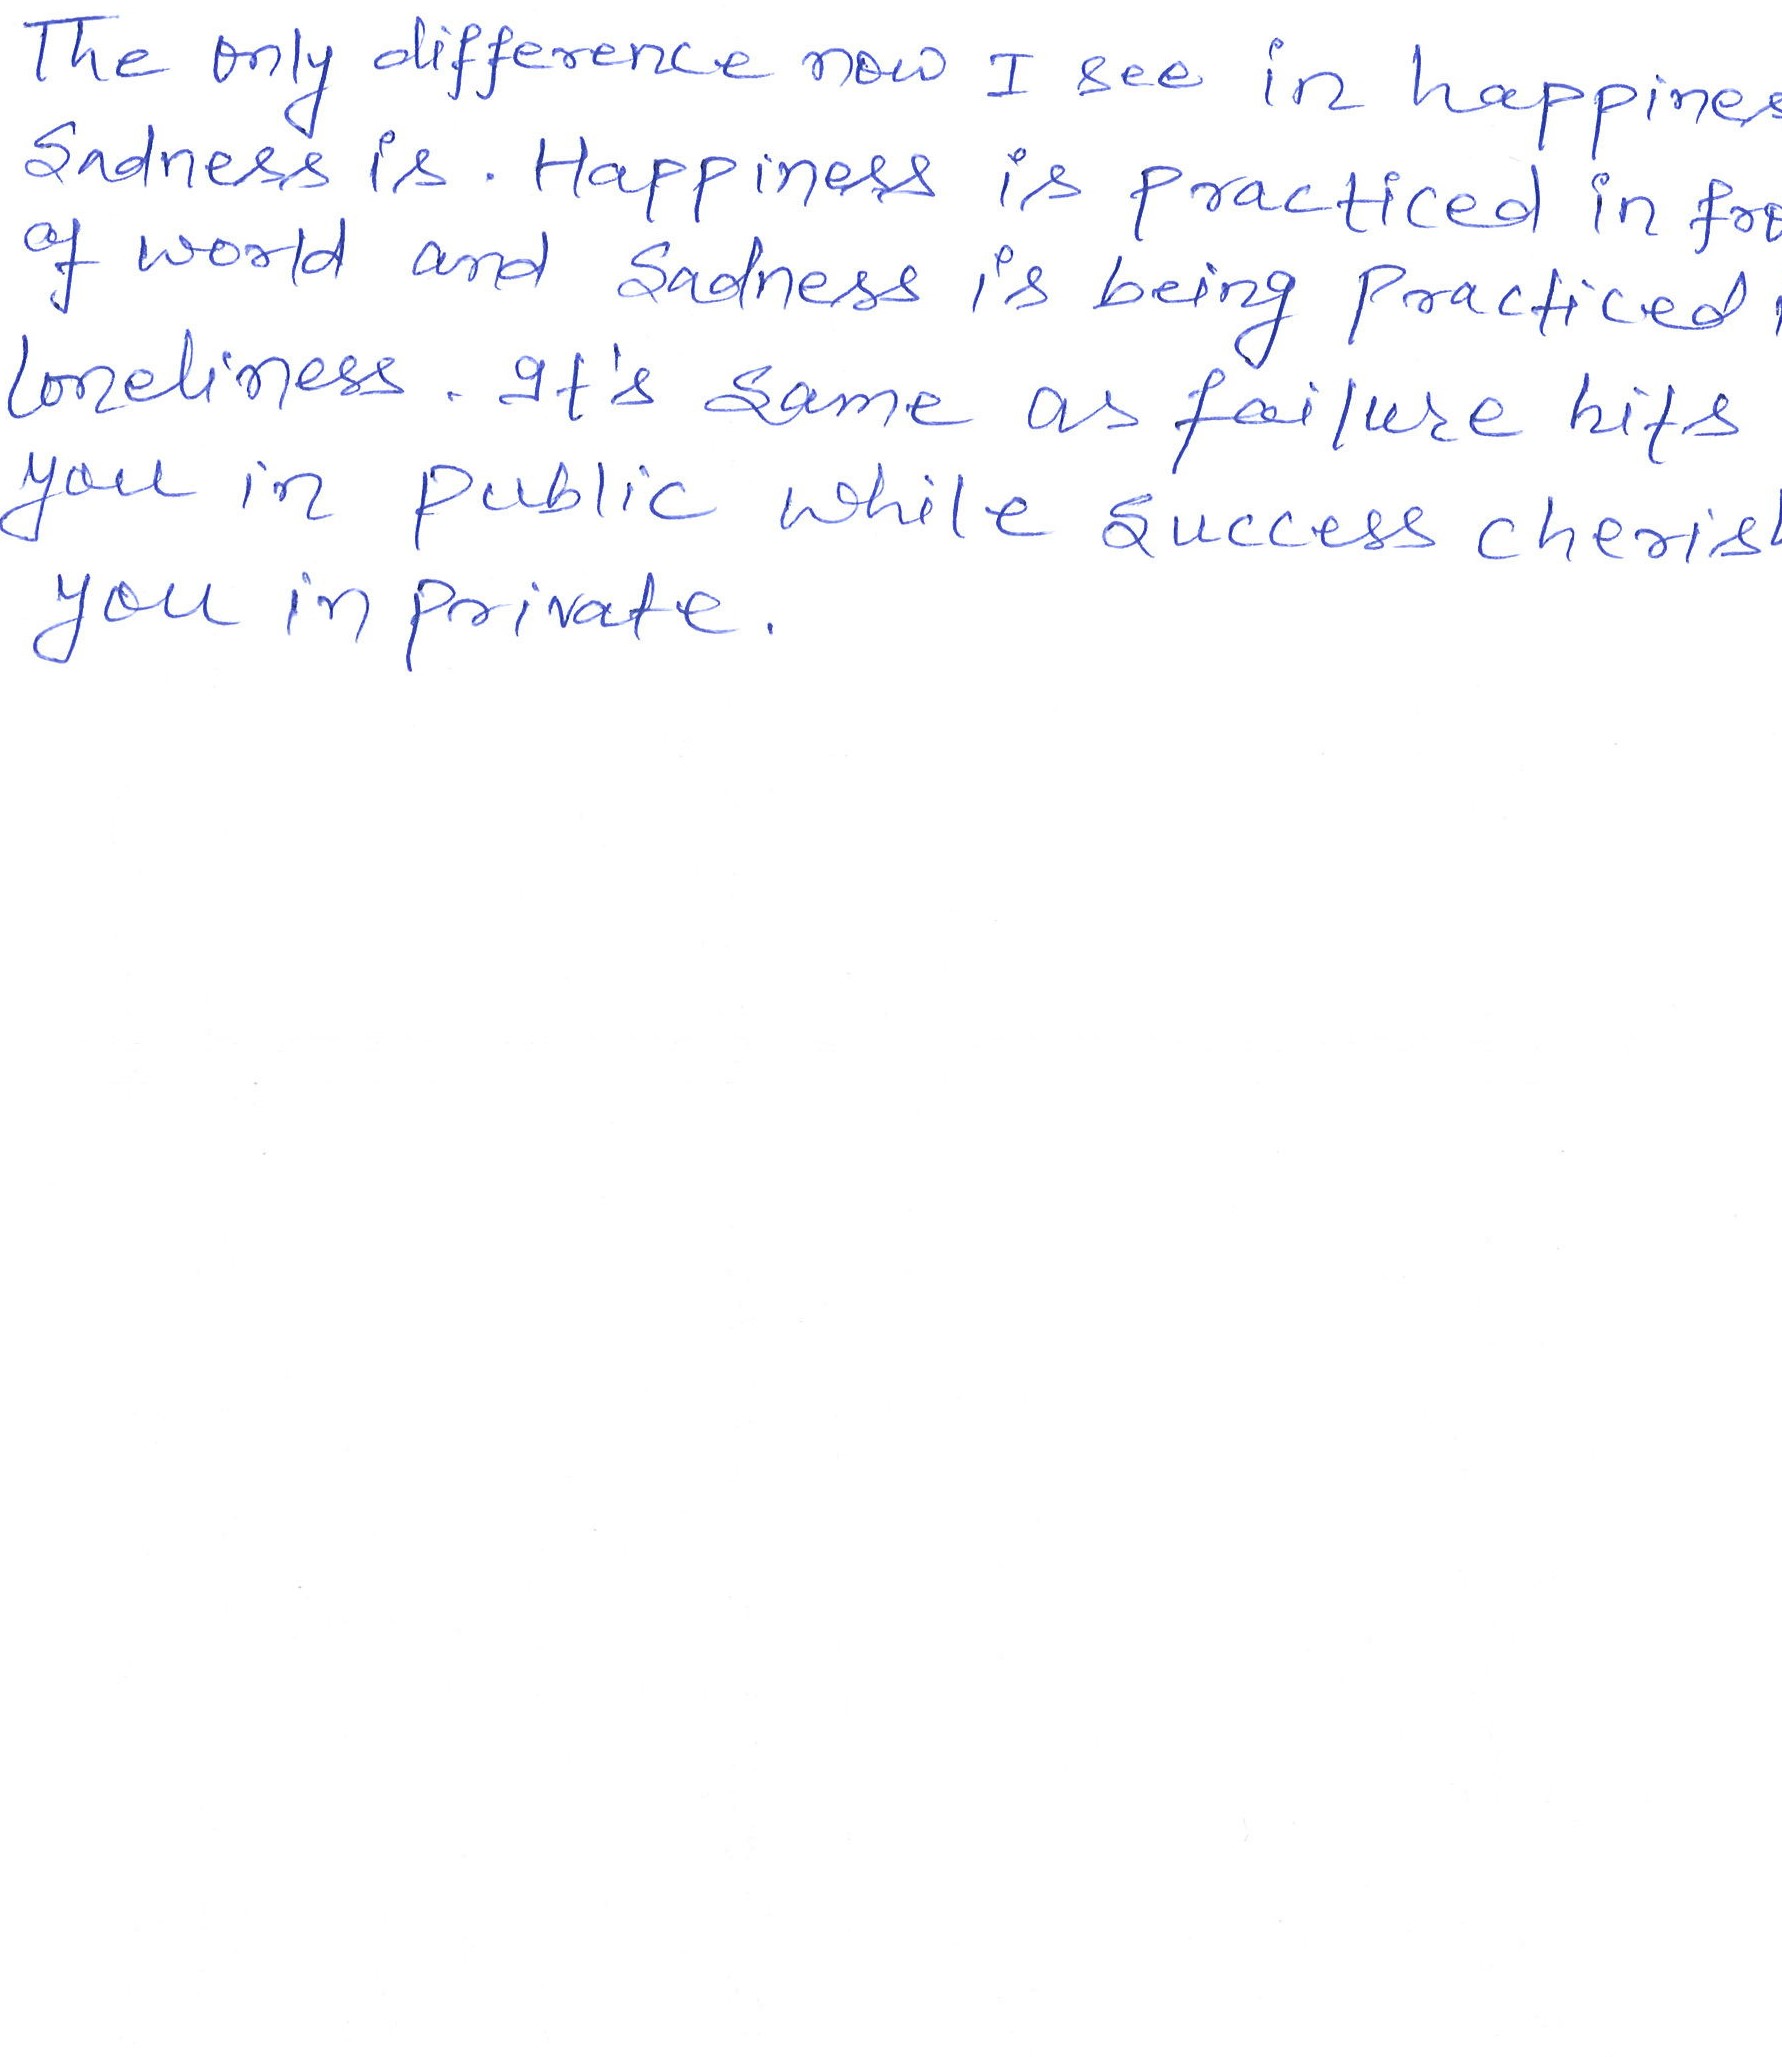 The only difference now I see in happines
Sadness is. Happiness is practiced in fro
of world and Sadness is being Practiced
loneliness. It's Same as failure hits
you in public while Success cherish
you in private.